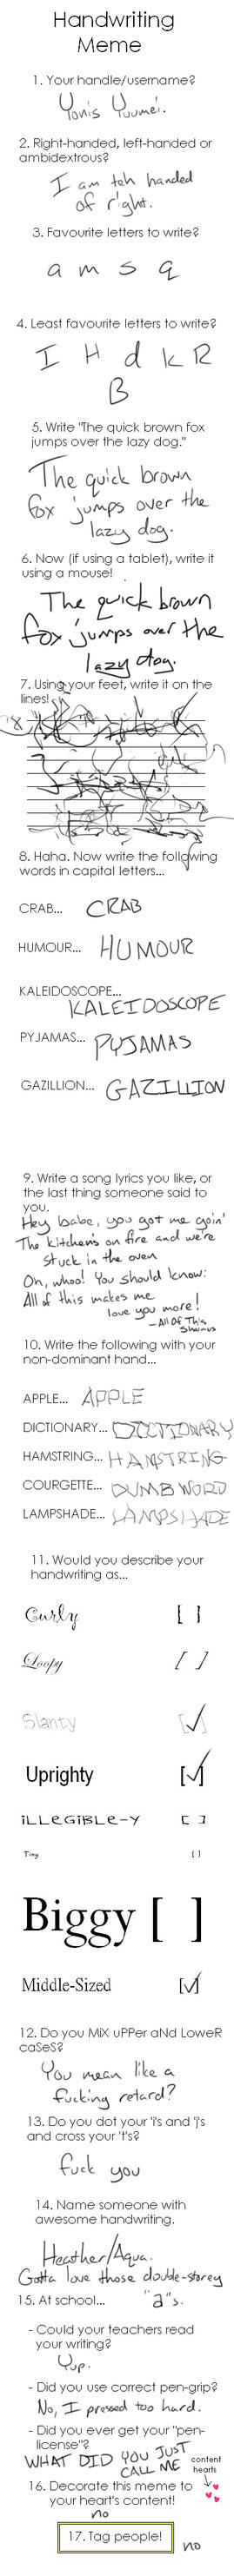 Handwriting
Meme
1. Your handle/username?
Yonis Yuumei.
2. Right-handed, left-handed or
ambidextrous?
I am teh handed
of right.
3. Favourite letters to write?
a m s q
4. Least favourite letters to write?
I H d k R
B
5. Write "The quick brown fox
jumps over the lazy dog."
The quick brown
fox jumps over the
lazy dog.
6. Now (if using a tablet), write it
using a mouse!
The quick brown
fox jumps over the
lazy dog.
7. Using your feet, write it on the
lines!
8. Haha. Now write the following
words in capital letters...
CRAB... CRAB
HUMOUR... HUMOUR
KALEIDOSCOPE...
KALEIDOSCOPE
PYJAMAS... PYJAMAS
GAZILLION... GAZILLION
9. Write a song lyrics you like, or
the last thing someone said to
you.
Hey babe, you got me goin'
The kitchen's on fire and we're
stuck in the oven
Oh, whoo! You should know:
All of this makes me
love you more!
- All Of This
10. Write the following with your
non-dominant hand...
APPLE... APPLE
DICTIONARY... DICTIONARY
HAMSTRING... HAMSTRING
COURGETTE... DUMB WORD
LAMPSHADE... LAMPSHADE
11. Would you describe your
handwriting as...
Curly [ ]
Loopy [ ]
Slanty [✓]
Uprighty [✓]
iLLeGiBLe-Y [ ]
Tiny [ ]
Biggy [ ]
Middle-Sized [✓]
12. Do you MiX uPPer aNd LoweR
caSeS?
You mean like a
fucking retard?
13. Do you dot your 'i's and 'j's
and cross your 't's?
fuck you
14. Name someone with
awesome handwriting.
Heather/Aqua.
Gotta love those double-storey
"a"s.
15. At school...
- Could your teachers read
your writing?
Yup.
- Did you use correct pen-grip?
No, I pressed too hard.
- Did you ever get your "pen-
license"?
WHAT DID YOU JUST
CALL ME
content
hearts
16. Decorate this meme to
your heart's content!
no
17. Tag people!
no